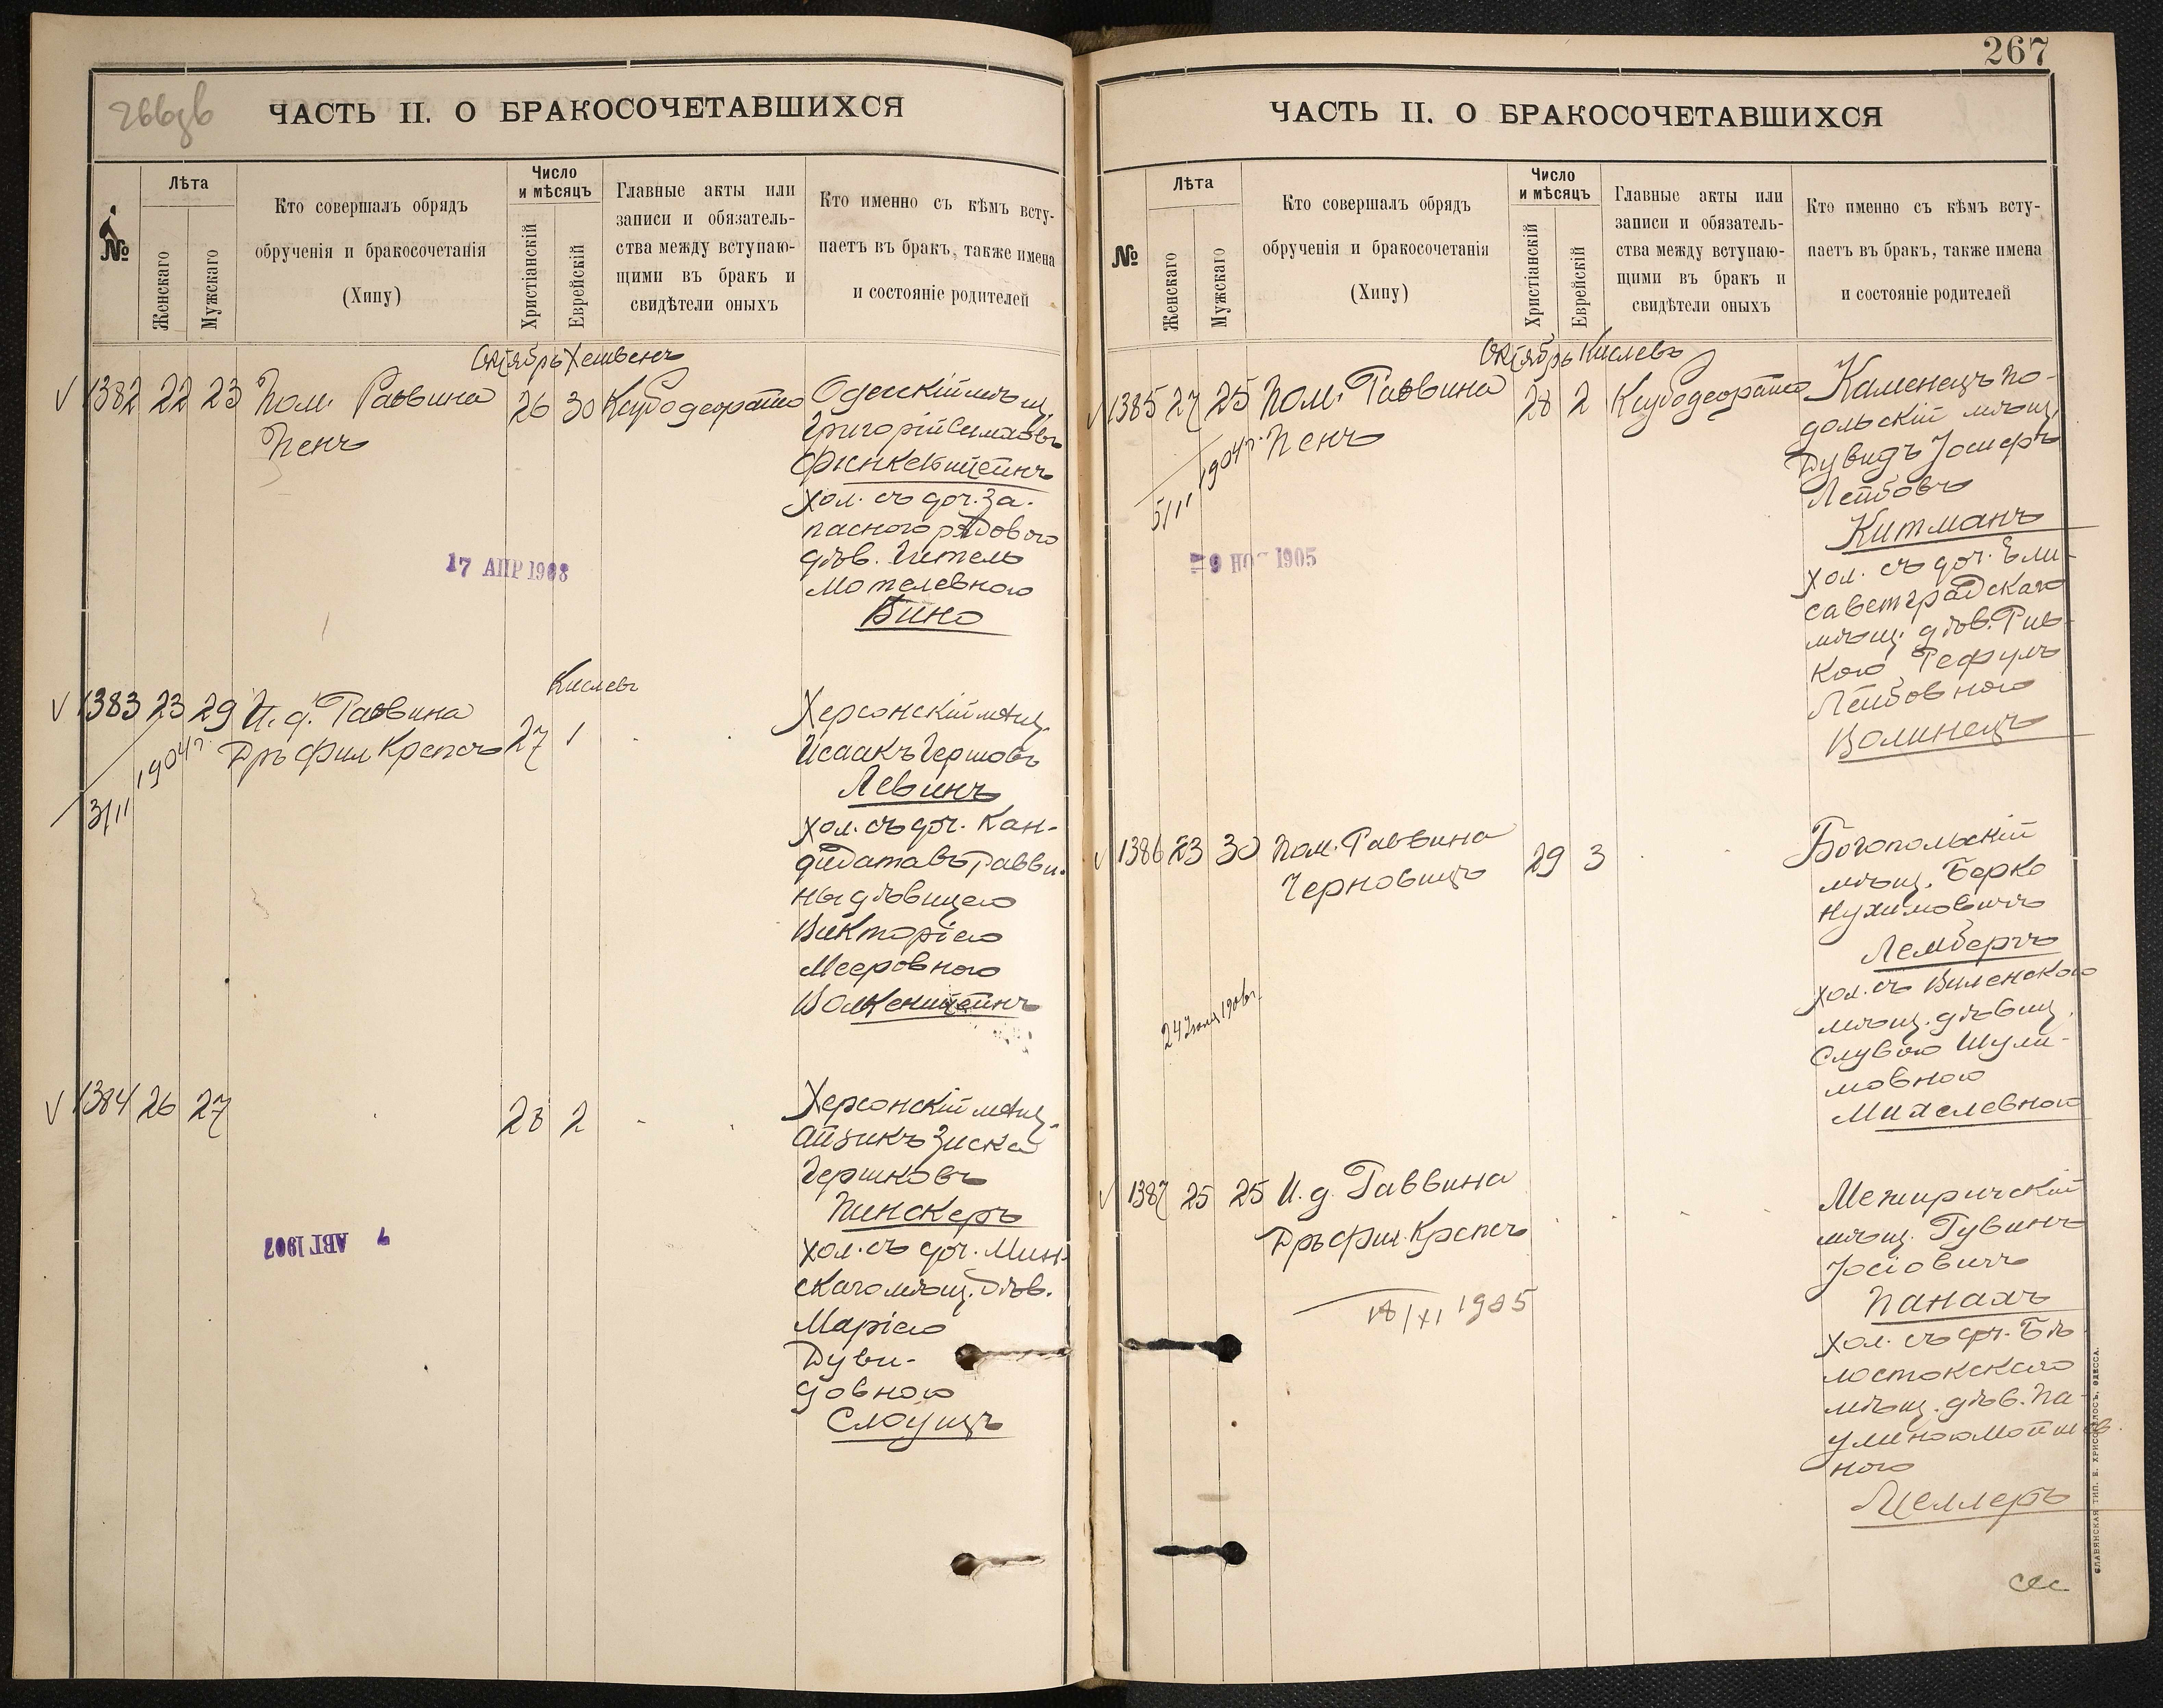 266зв
ЧАСТЬ II. О БРАКОСОЧЕТАВШИХСЯ
№
Лѣта
Женскаго
Мужскаго
Кто совершалъ обрядъ
обрученія и бракосочетанія
(Хипу)
Число
и мѣсяцъ
Христіанскій
Еврейскій
Главные акты или
записи и обязатель-
ства между вступаю-
щими въ бракъ и
свидѣтели оныхъ
Кто именно съ кѣмъ всту-
паетъ въ бракъ, также имена
и состояніе родителей
Октябрь Хешвенъ
1382 22 23 Пом. Раввина 26 30
Пенъ
Одесскій мѣщ.
Григорій Симховъ
Финкельштейнъ
хол. съ доч. за-
пасного рядового
дѣв. Гитель
Мотелевною
Бино
17 АПР 1908
Кислевъ
1383 23 29 И. д. Раввина 27 1
Дръ Фил Крепсъ
1904 г.
3/11
Херсонскій мѣщ.
Исаакъ Гершовъ
Левинъ
хол. съ доч. Кан-
дидата въ Равви-
ны дѣвицею
Викторіею
Мееровною
Волкенштейнъ
1384 26 27 28 2
Херсонскій мѣщ.
Айзикъ Зиска
Гершковъ
Пинскеръ
хол. съ доч. Мин-
скаго мѣщ. дѣв.
Маріею
Дуви-
довною
Слоущъ
7 АВГ 1907
267
ЧАСТЬ II. О БРАКОСОЧЕТАВШИХСЯ
№
Лѣта
Женскаго
Мужскаго
Кто совершалъ обрядъ
обрученія и бракосочетанія
(Хипу)
Число
и мѣсяцъ
Христіанскій
Еврейскій
Главные акты или
записи и обязатель-
ства между вступаю-
щими въ бракъ и
свидѣтели оныхъ
Кто именно съ кѣмъ всту-
паетъ въ бракъ, также имена
и состояніе родителей
Октябрь Кислевъ
1385 27 25 Пом. Раввина 28 2
Пенъ
1904 г.
5/11
Каменецъ По-
дольскій мѣщ.
Дувидъ Іосифъ
Лейбовъ
Китманъ
хол. съ доч. Ели-
саветградскаго
мѣщ. дѣв. Рив-
кою Рефулъ
Лейбовною
Волинецъ
9 НО 1905
1386 23 30 Пом. Раввина 29 3
Черновицъ
Богопольскій
мѣщ. Берко
Нухимовичъ
Лембергъ
хол. съ Виленскою
мѣщ. дѣвиц.
Слувою Шули-
мовною
Михелевною
1387 25 25 И. д. Раввина
Дръ Фил. Крепсъ
18/XI 1905
Межиричскій
мѣщ. Рувинъ
Іосіовичъ
Панахъ
хол. съ доч. Бѣ-
лостокскаго
мѣщ. дѣв. Па-
улиною Мойшев-
ною
Целлеръ
СЛАВЯНСКАЯ ТИП. Е. ХРИСОГЕЛОСЪ, ОДЕССА.